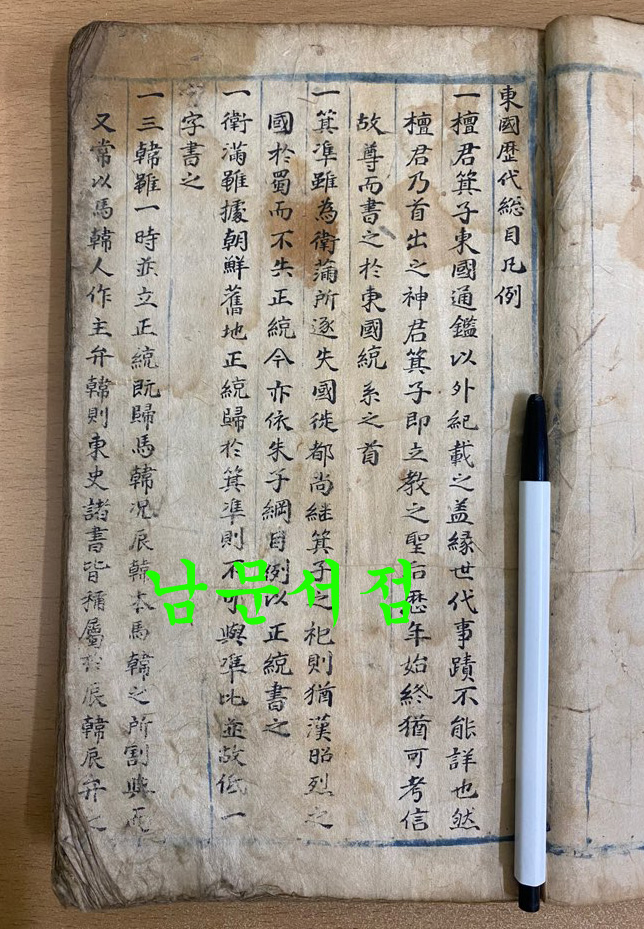 東國歷代總目凡例
一檀君箕子東國通鑑以外紀載之盖緣世代事蹟不能詳也然
檀君乃首出之神君箕子即立教之聖后歷年始終猶可考信
故尊而書之於東國統系之首
一箕準雖為衛滿所逐失國徙都尚継箕子之祀則猶漢昭烈之
國於蜀而不失正統今亦依朱子綱目例以正統書之
一衛滿雖據朝鮮舊地正統歸於箕準則不可與準比並故低一
字書之
一三韓雖一時並立正統既歸馬韓况辰韓本馬韓之所割與
又常以馬韓人作主弁韓則東史諸書皆稱屬於辰韓辰弁之
남문서점